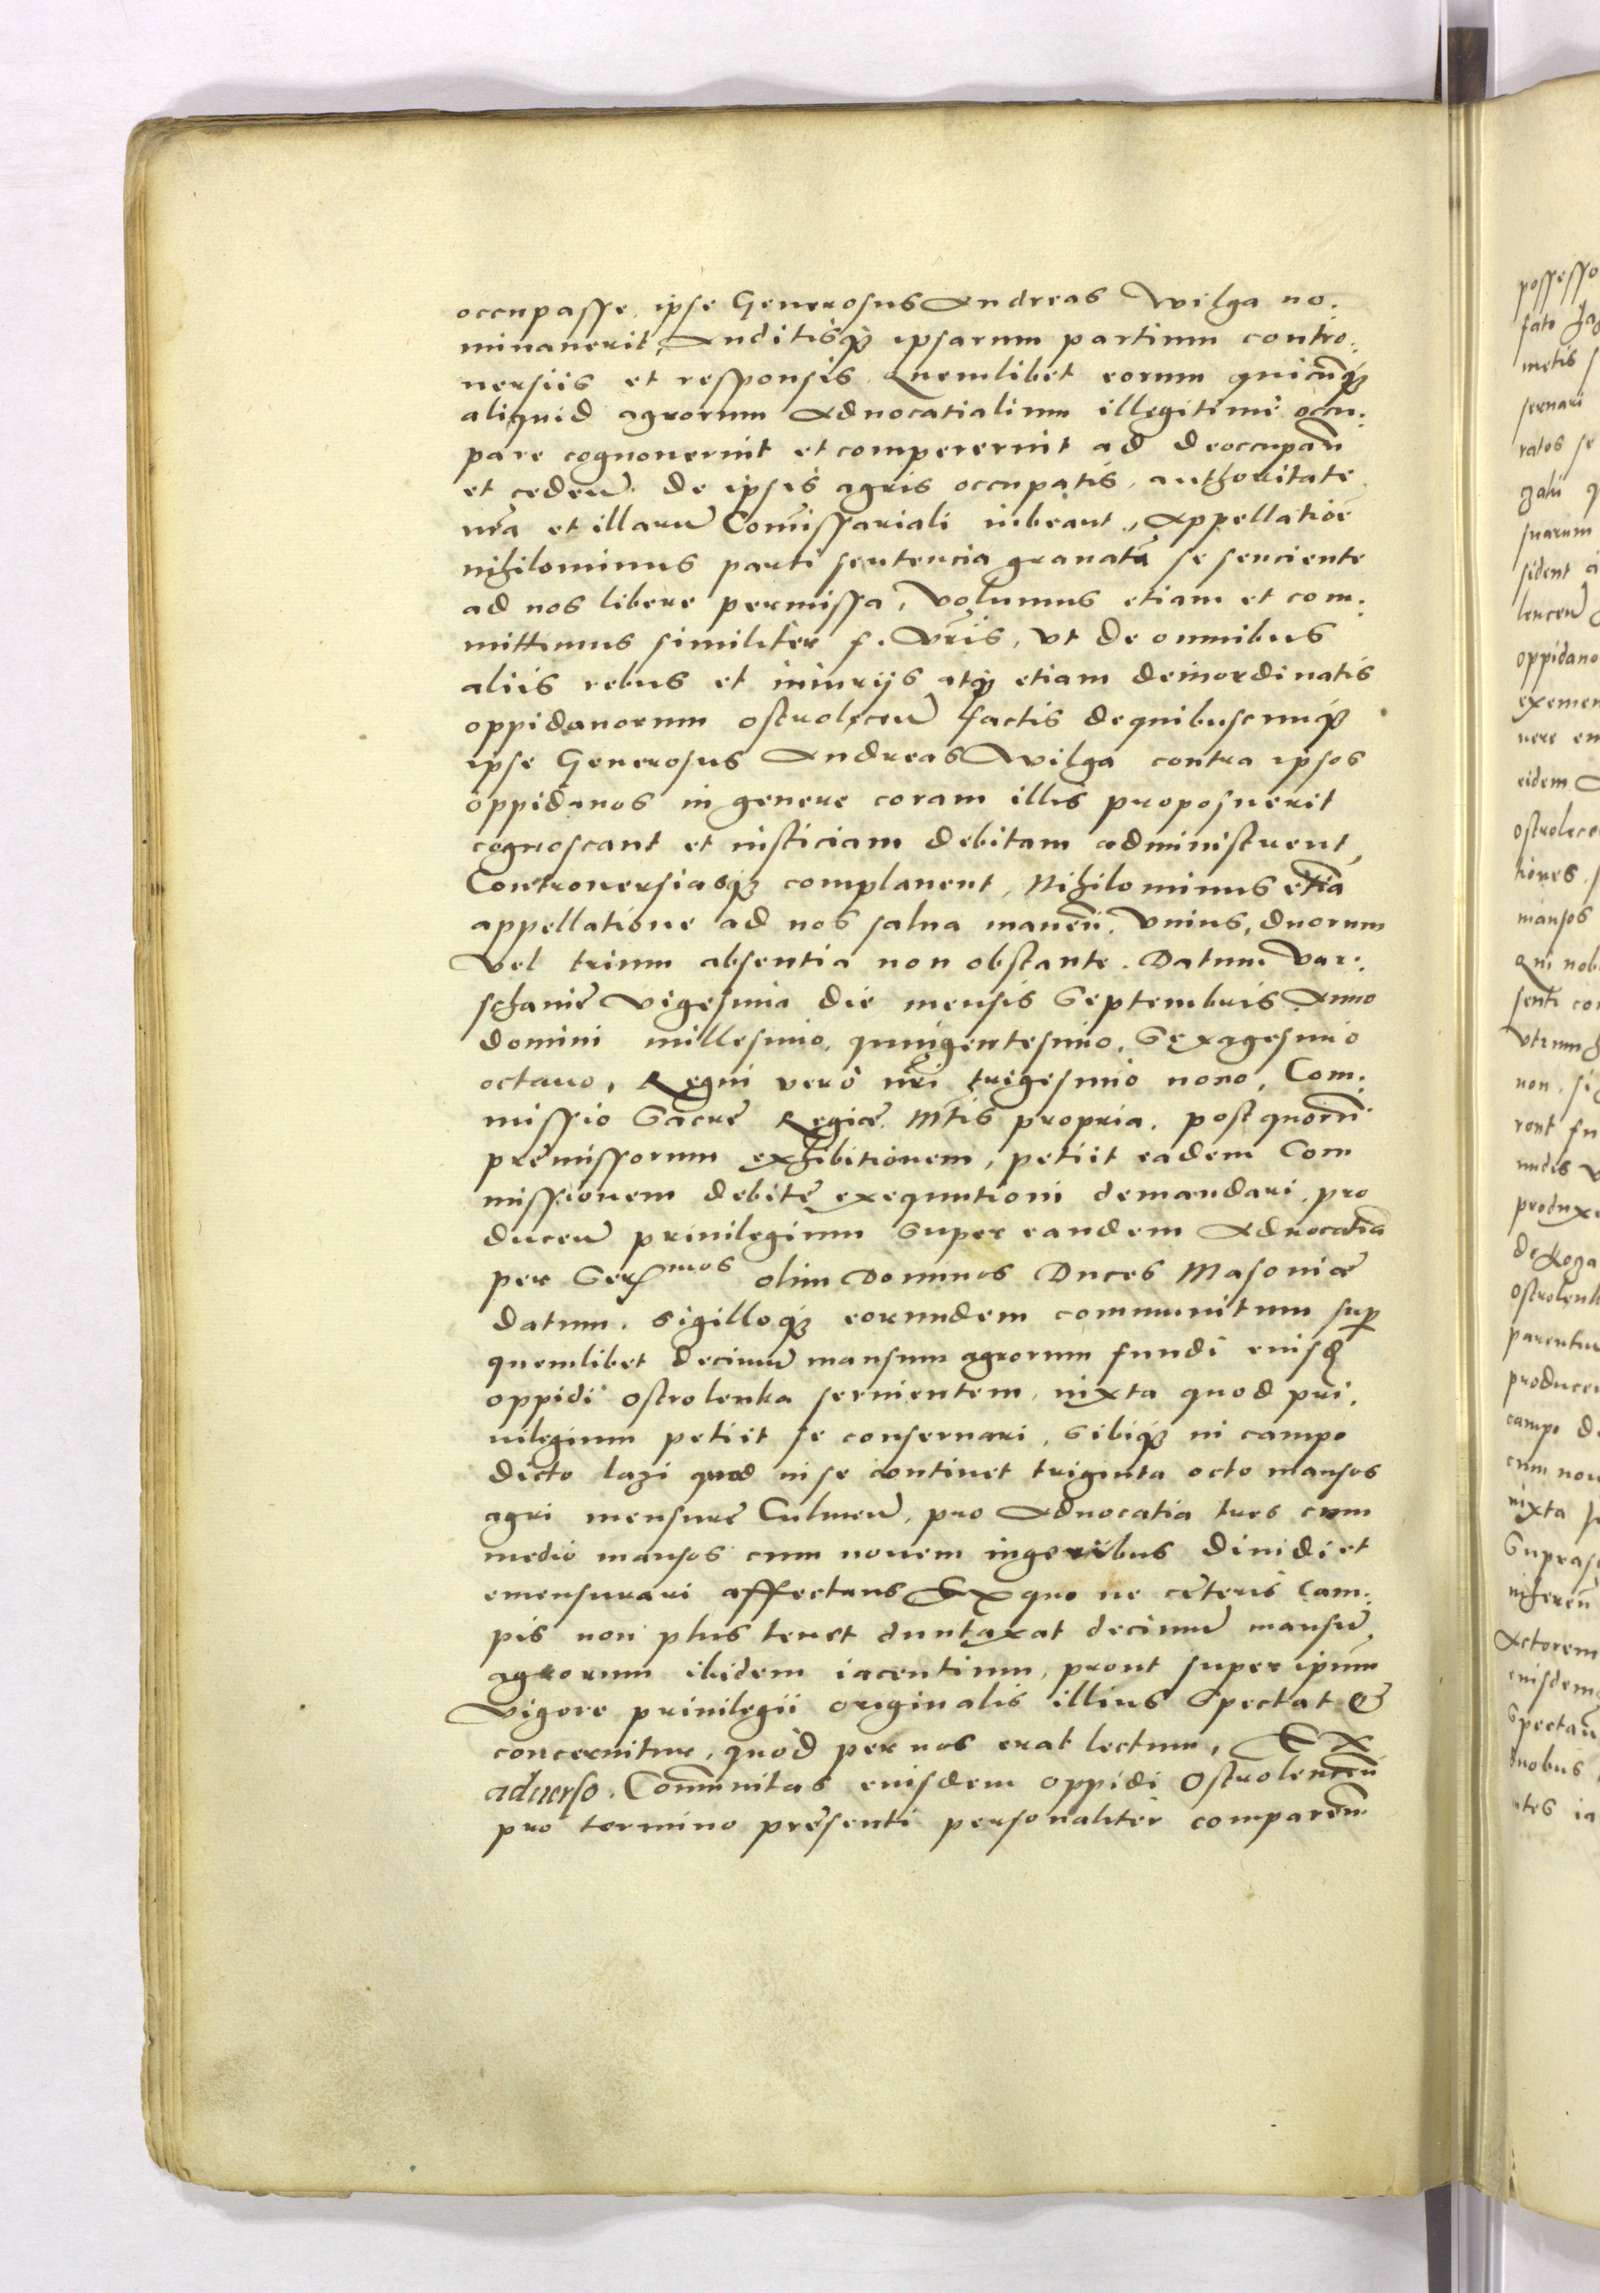 occupasse, ipse Generosus Andreas Wilga no:
minauerit, Auditisq₃ ipsarum partium contro:
uersiis et responsis Quemlibet eorum quicūq₃
aliquid agrorum Aduocatialium illegitimè occu:
pare cognouerint et compererint ad deoccupan̄
et ceden̄ de ipsis agris occupatis, authoritate
nr̄a et illarū Com̄issariali iubeant, Appellatiōe
nihilominus parti sentencia grauatā se senciente
ad nos libere permissa, Volumus etiam et com:
mittimus similiter f. Vr̄is, vt de omnibus
aliis rebus et iniurijs atq₃ etiam deinordinatis
oppidanorum ostrolęcen̄ factis dequibuscunq₃
ipse Generosus Andreas Wilga contra ipsos
oppidanos in genere coram illis proposuerit
cognoscant et iusticiam debitam administrent,
Controuersiasq₃ complanent, Nihilominus etiā
appellatione ad nos salua manen̄. Vnius, duorum
vel trium absentia non obstante. Datum Var:
schauię vigesima die mensis Septembris Anno
domini millesimo, quingentesimo, Sexagesimo
octauo, Regni verò nr̄i trigesimo nono, Com:
missio Sacrę Regię M̄tis propria. post quorū
pręmissorum exhibitionem, petiit eadem Com
missionem debitę exequutioni demandari, pro
ducen̄ priuilegium super eandem Aduocatiā
per Serᵐᵒˢ olim Dominos Duces Masouię
datum. sigilloq₃ eorumdem communitum sup̱
quemlibet decimū mansum agrorum fundi eiusd̄
oppidi ostrolenka seruientem, iuxta quod pri.
uilegium petiit se conseruari, Sibiq₃ in campo
dicto lazi quod in se continet triginta octo mansos
agri mensurę Culmen̄, pro Aduocatia tres cum
medio mansos cum nouem iugeribus diuidi et
emensurari affectans Ex quo ne cęteris Cam:
pis non plus tenet duntaxat decimū mansū
agrorum ibidem iacentium, prout super ipsum
vigore priuilegii originalis illius spectat &
concernitur, quòd per nos erat lectum, EX
aduerso. Com̄unitas eiusdem oppidi Ostrolencen̄
pro termino pręsenti personaliter comparen̄